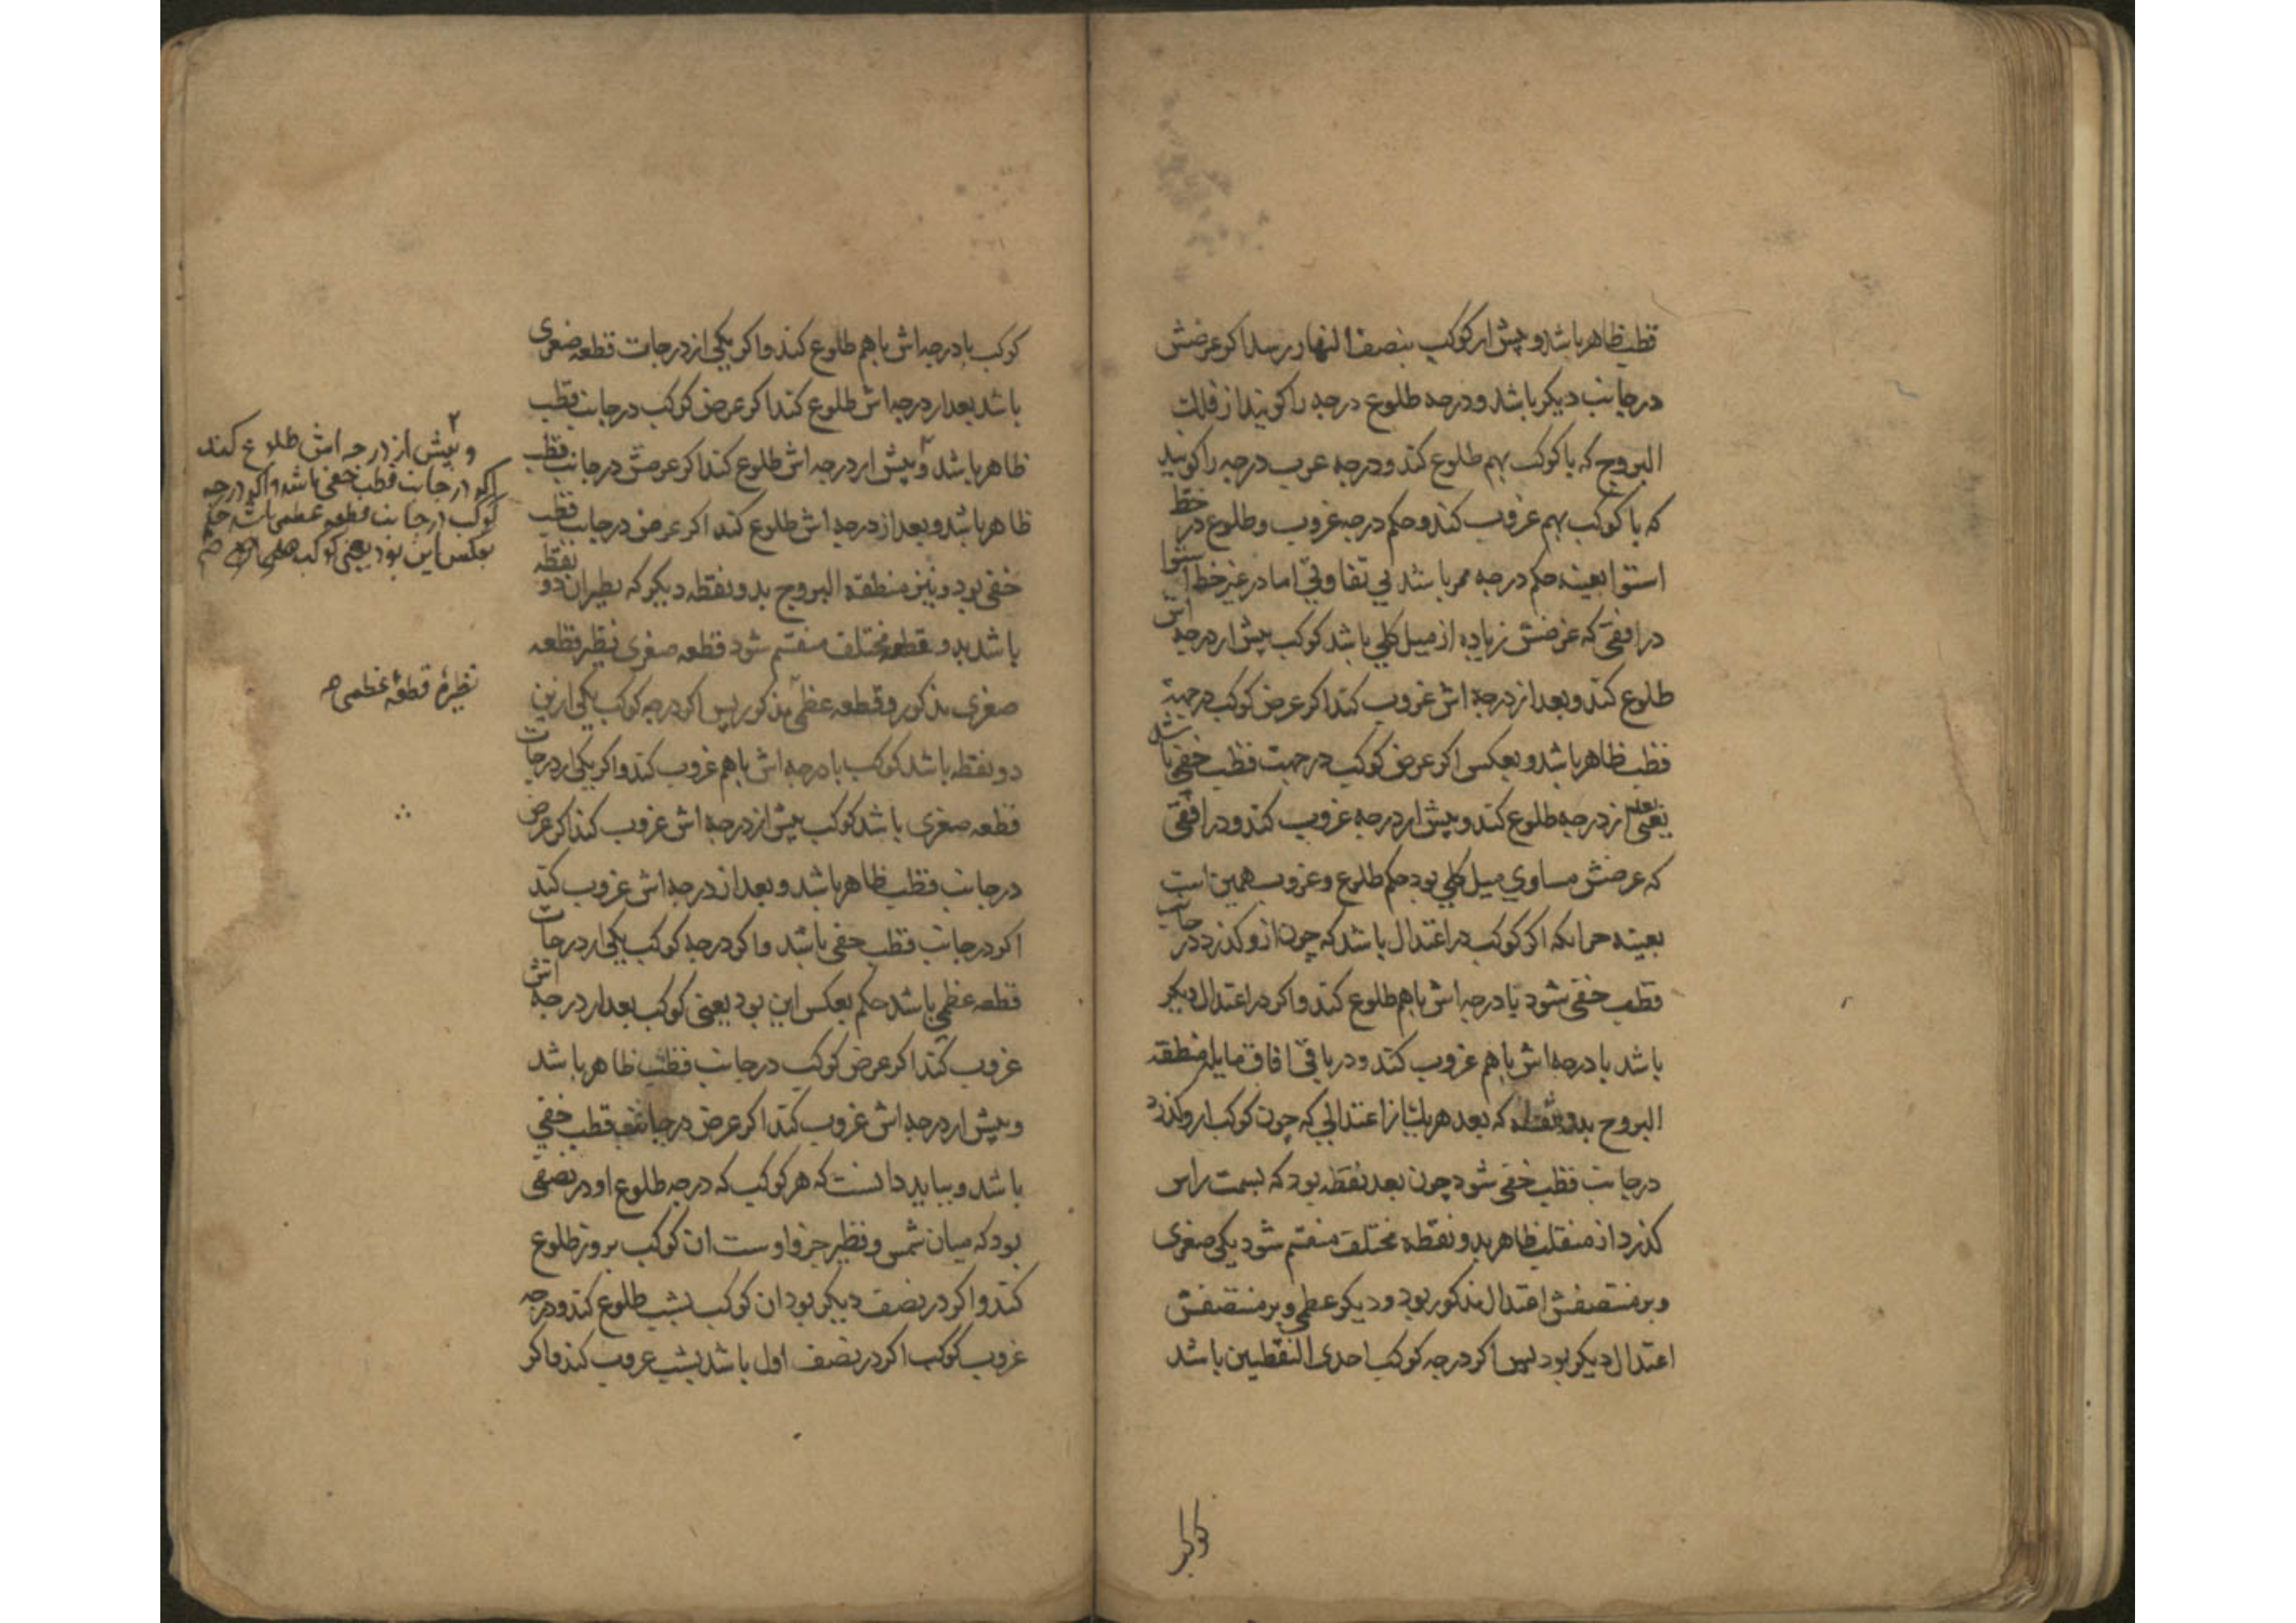 قطب ظاهر باشد و پیش از کوکب بنصف النهار رسد اکر عرضش
در جانب دیکر باشد و درجه طلوع درجه را کویند از فلک
البروج که با کوکب بهم طلوع کند و درجه غروب درجه را کویند
که با کوکب بهم غروب کند و حکم درجه غروب و طلوع در خط
استوا بعینه حکم درجه ممر باشد بی تفاوتی اما در غیر خط استوا
در افقی که عرضش زیاده از میل کلی باشد کوکب پیش از درجه اش
طلوع کند و بعد از درجه اش غروب کند اکر عرض کوکب در جهة
قطب ظاهر باشد و بعکس اکر عرض کوکب در جهت قطب خفی باشد
یعنی بعد از درجه طلوع کند و پیش از درجه غروب کند و در افقی
که عرضش مساوی میل کلی بود حکم طلوع و غروب همین است
بعینه جز آنکه اکر کوکب در اعتدال باشد که چون ازو کذرد در جانب
قطب خفی شود با درجه اش باهم طلوع کند و اکر در اعتدال دیکر
باشد با درجه اش باهم غروب کند و در باقی افاق مایله منطقه
البروج بدو نقطه که بعد هر یک از اعتدالی که چون کوکب ازو کذرد
در جانب قطب خفی شود چون بعد نقطه بود که بسمت راس
کذرد از منقلب ظاهر بدو نقطه مختلف منقسم شود یکی صغری
و بر منتصفش اعتدال مذکور بود و دیکر عظمی و بر منتصفش
اعتدال دیکر بود پس اکر درجه کوکب احدی النقطتین باشد
کوکب
کوکب با درجه اش باهم طلوع کند و اکر یکی از درجات قطعه صغری
باشد بعد از درجه اش طلوع کند اکر عرض کوکب در جانب قطب
ظاهر باشد ۲ و پیش از درجه اش طلوع کند اکر عرضش در جانب قطب
ظاهر باشد و بعد از درجه اش طلوع کند اکر عرض در جانب قطب
خفی بود و نیز منطقة البروج بدو نقطه دیکر که نظیر ان دو نقطه
باشد بدو قطعه مختلف منقسم شود قطعه صغری نظیر قطعه
صغری مذکور و قطعه عظمی مذکور پس اکر درجه کوکب یکی ازین
دو نقطه باشد کوکب با درجه اش باهم غروب کند و اکر یکی از درجات
قطعه صغری باشد کوکب پیش از درجه اش غروب کند اکر عرض
در جانب قطب ظاهر باشد و بعد از درجه اش غروب کند
اکر در جانب قطب خفی باشد و اکر درجه کوکب یکی از درجات
قطعه عظمی باشد حکم بعکس این بود یعنی کوکب بعد از درجه اش
غروب کند اکر عرض کوکب در جانب قطب ظاهر باشد
و پیش از درجه اش غروب کند اکر عرض در جانب قطب خفی
باشد و بباید دانست که هر کوکب که درجه طلوع او در نصفی
بود که میان شمس و نظیر جزو اوست ان کوکب بروز طلوع
کند و اکر در نصف دیکر بود ان کوکب بشب طلوع کند و درجه
غروب کوکب اکر در نصف اول باشد بشب غروب کند و اکر
۲
و پیش از درجه اش طلوع کند
اکر در جانب قطب خفی باشد و اکر درجه
کوکب در جانب قطعه عظمی باشد حکم
بعکس این بود یعنی کوکب
نظیرهٔ قطعهٔ عظمی